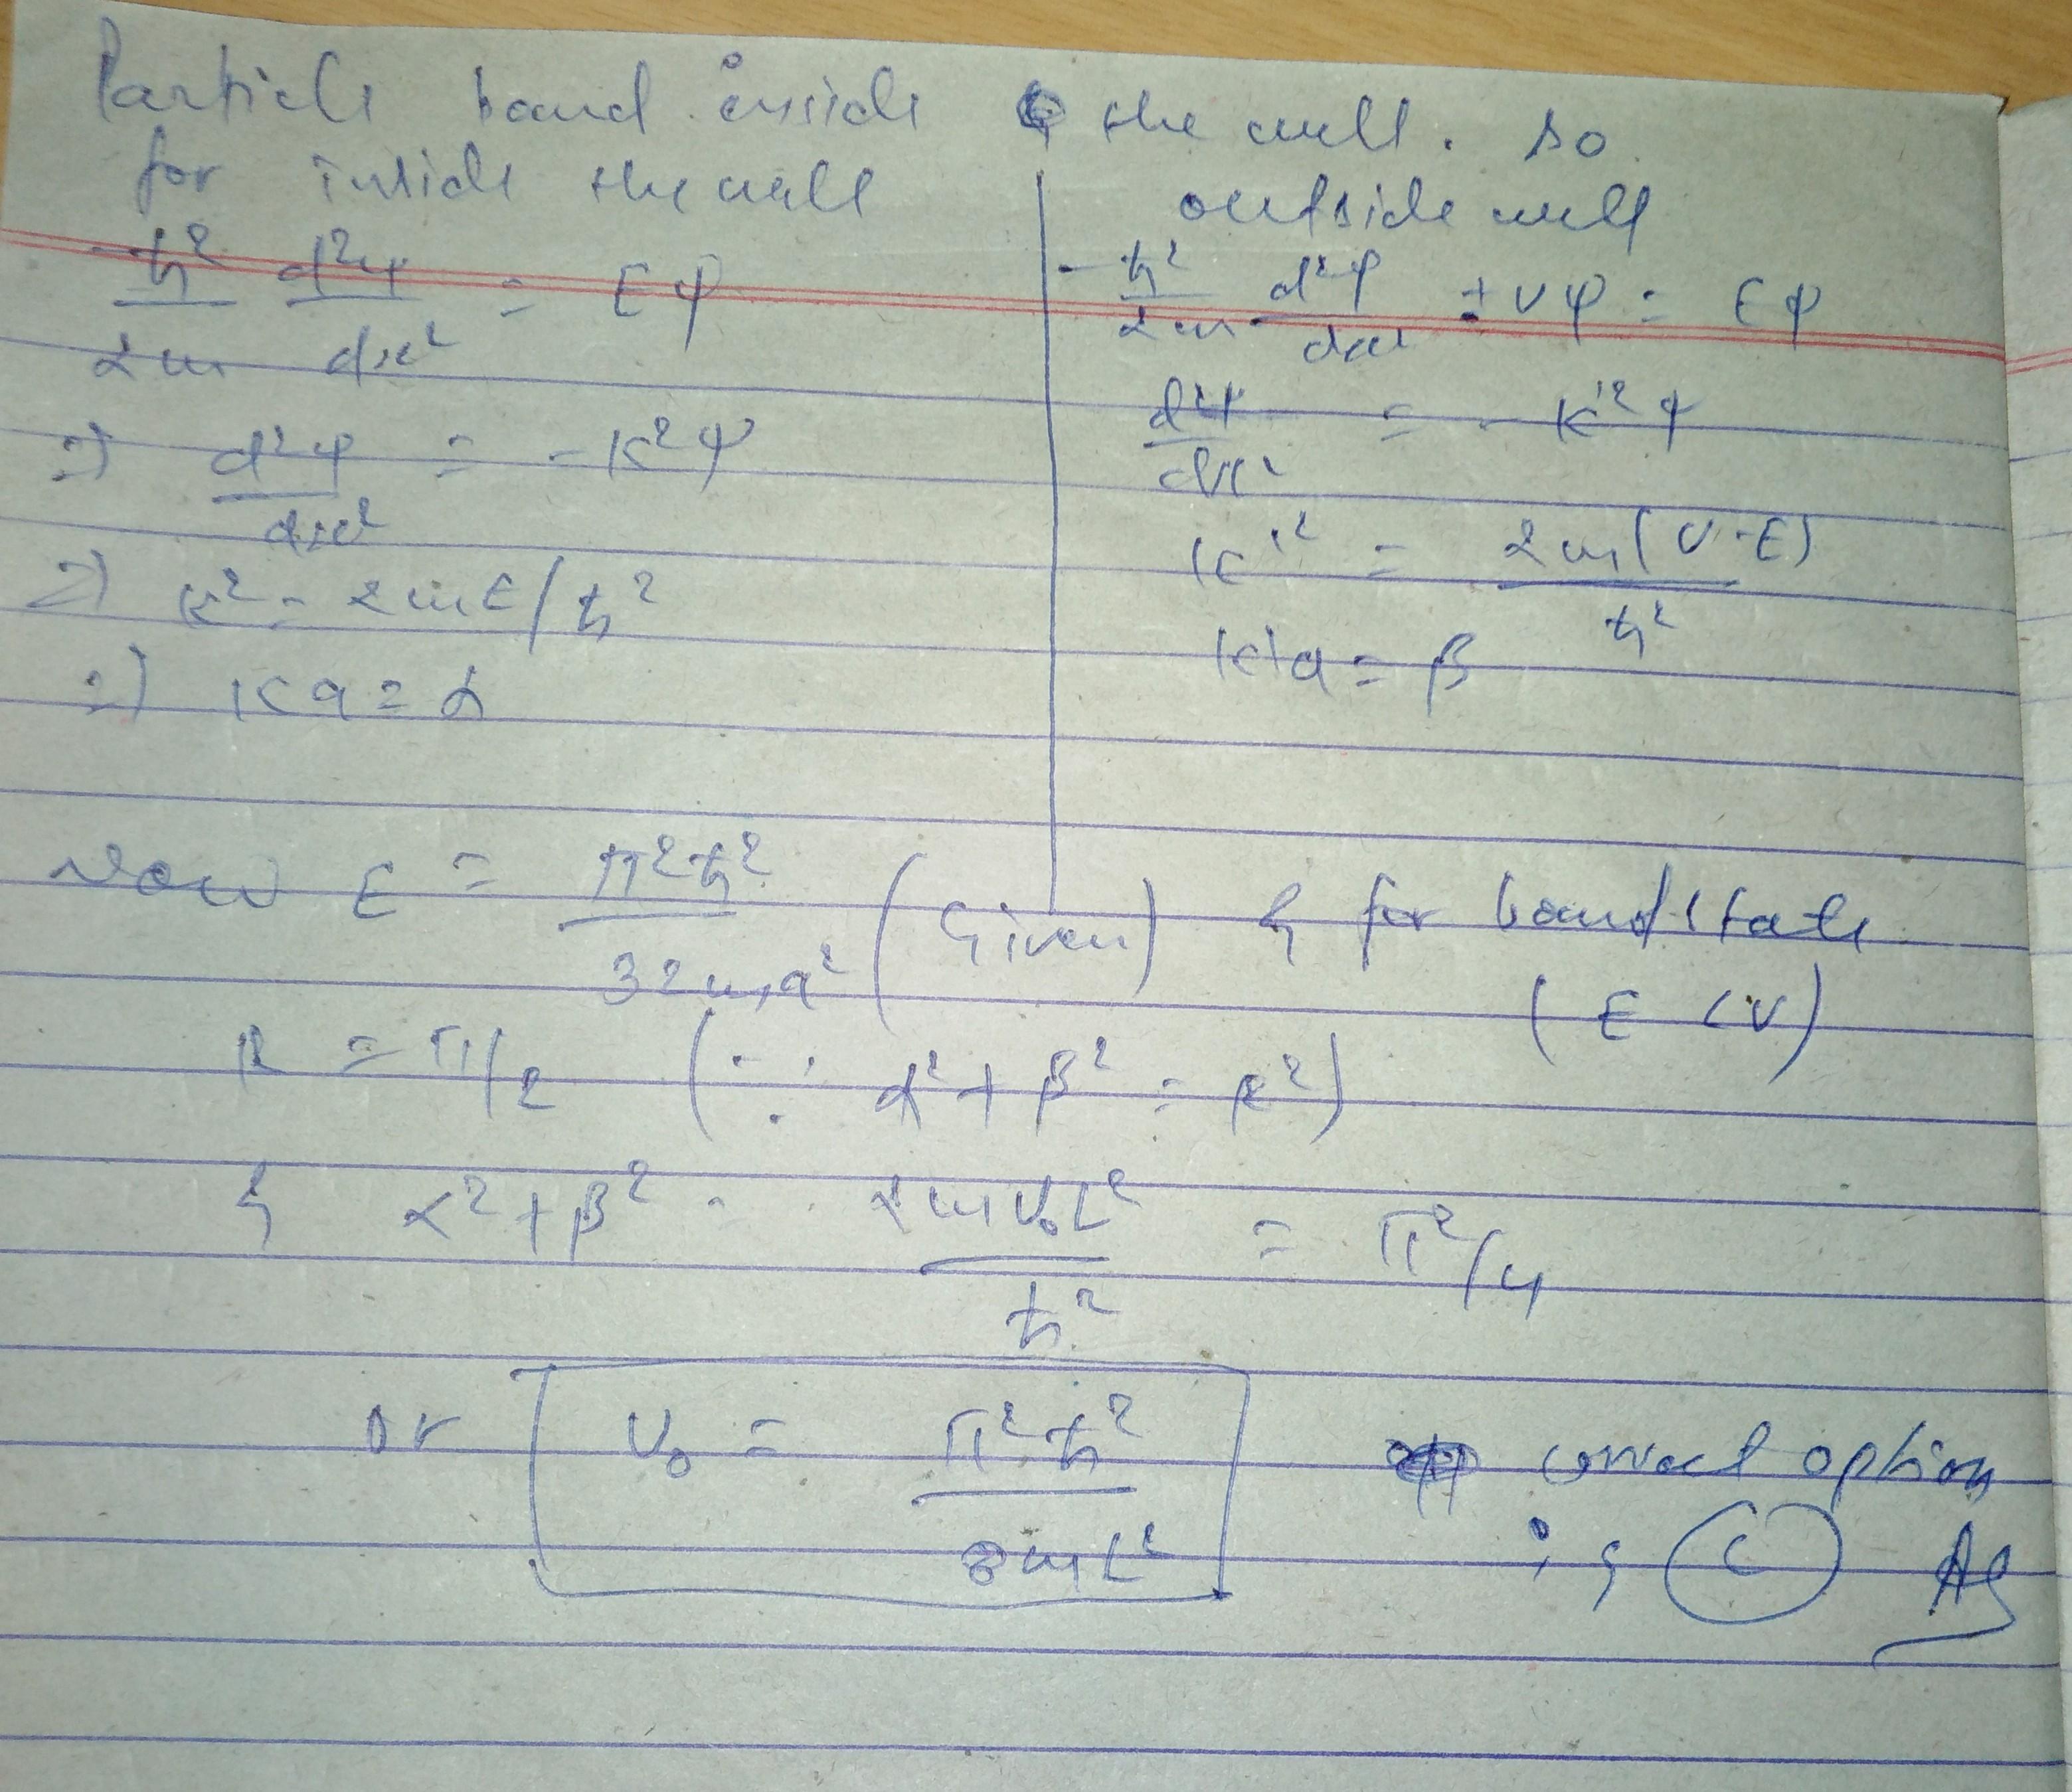 Particle bound inside the well. so
for inside the well
-ħ²/2m d²ψ/dx² = Eψ
=) d²ψ/dx² = -K²ψ
=) K² = 2mE/ħ²
=) Ka = α
outside well
-ħ²/2m d²ψ/dx² + Vψ = Eψ
d²ψ/dx² = K'²ψ
K'² = 2m(V-E)/ħ²
K'a = β
Now E = π²ħ²/32ma² (Given) & for bound state
(E < V)
R = π/2 (∵ α² + β² = R²)
& α² + β² = 2mV₀L²/ħ² = π²/4
or V₀ = π²ħ²/8mL² correct option
is C